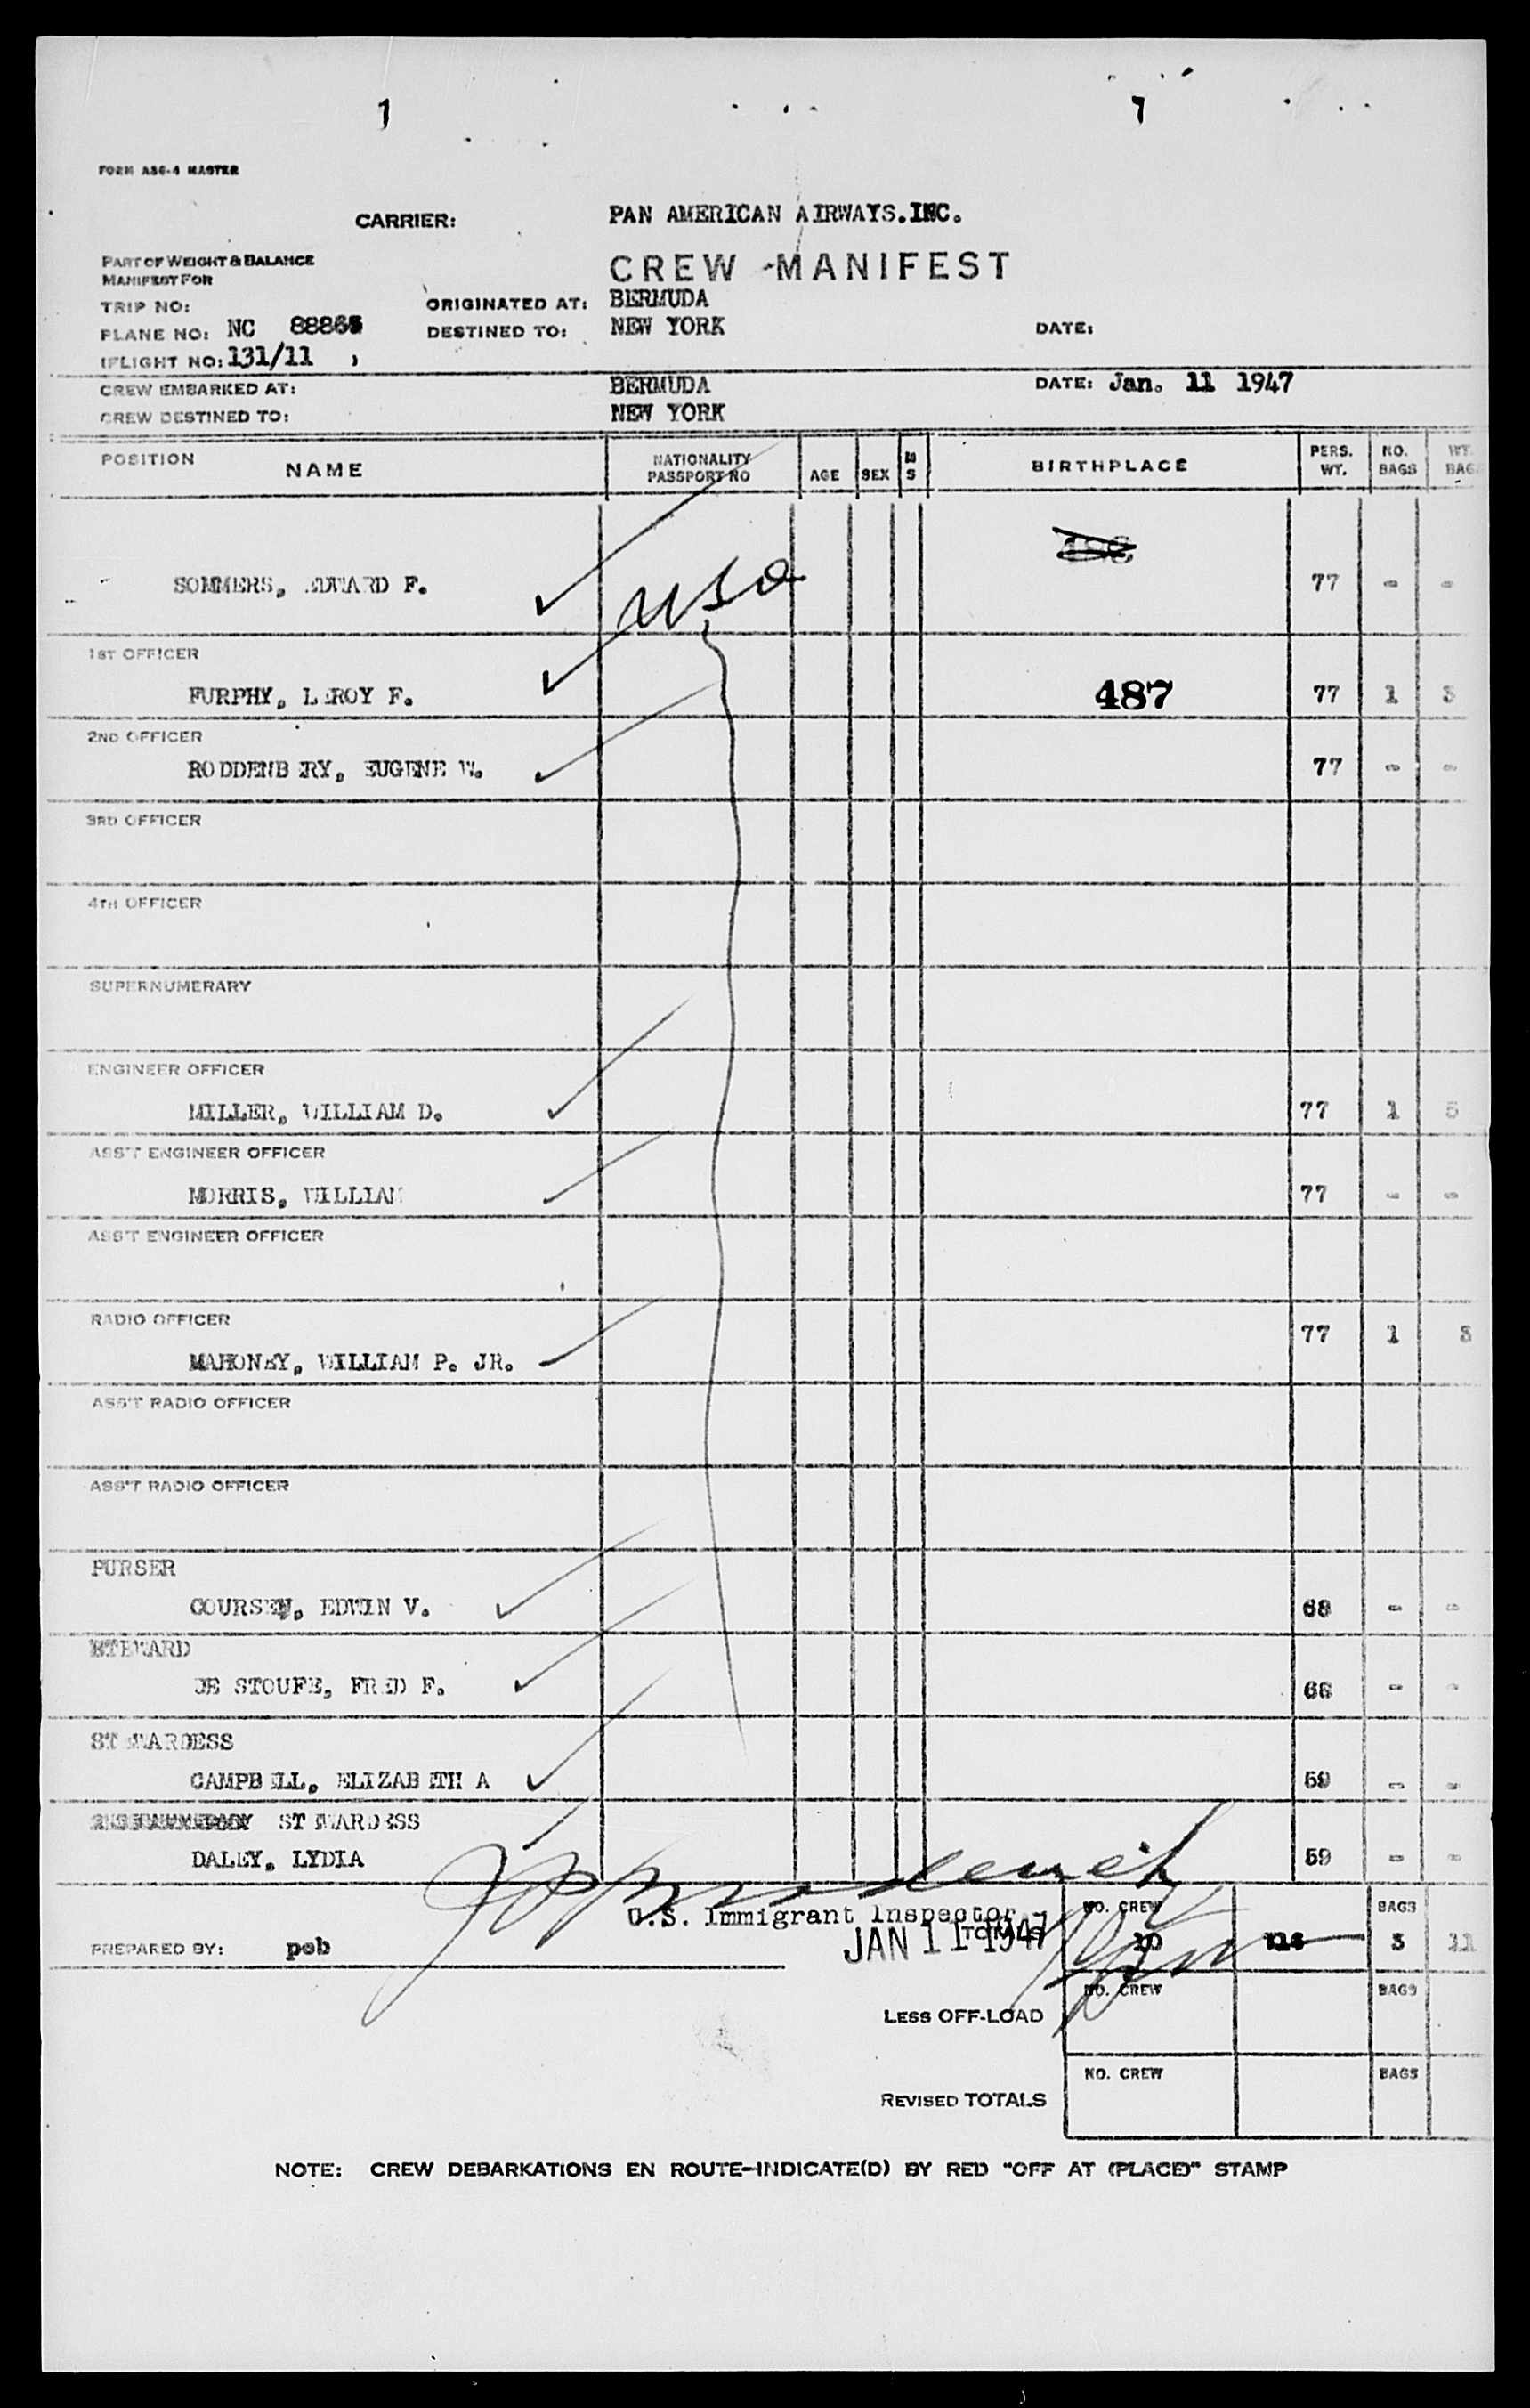 1 1
FORM ABG-4 MASTER
CARRIER: PAN AMERICAN AIRWAYS.INC.
PART OF WEIGHT & BALANCE
MANIFEST FOR
CREW MANIFEST
TRIP NO: ORIGINATED AT: BERMUDA
PLANE NO: NC 88865 DESTINED TO: NEW YORK DATE:
FLIGHT NO: 131/11
CREW EMBARKED AT: BERMUDA DATE: Jan. 11 1947
CREW DESTINED TO: NEW YORK
POSITION NAME NATIONALITY PASSPORT NO AGE SEX M S BIRTHPLACE PERS. WT. NO. BAGS WT. BAGS
SOMMERS, EDWARD F. USA 77 - -
1ST OFFICER
FURPHY, LEROY F. 487 77 1 3
2ND OFFICER
RODDENBERY, EUGENE W. 77 - -
3RD OFFICER
4TH OFFICER
SUPERNUMERARY
ENGINEER OFFICER
MILLER, WILLIAM D. 77 1 5
ASS'T ENGINEER OFFICER
MORRIS, WILLIAM 77 - -
ASS'T ENGINEER OFFICER
RADIO OFFICER
MAHONEY, WILLIAM P. JR. 77 1 3
ASS'T RADIO OFFICER
ASS'T RADIO OFFICER
PURSER
COURSEN, EDWIN V. 68 - -
STEWARD
DE STOUFE, FRED F. 68 - -
STEWARDESS
CAMPBELL, ELIZABETH A 59 - -
STEWARDESS
DALEY, LYDIA 59 - -
U.S. Immigrant Inspector
JAN 11 1947
NO. CREW 10 BAGS 3 11
PREPARED BY: peb
LESS OFF-LOAD NO. CREW BAGS
REVISED TOTALS NO. CREW BAGS
NOTE: CREW DEBARKATIONS EN ROUTE-INDICATE(D) BY RED "OFF AT (PLACE)" STAMP